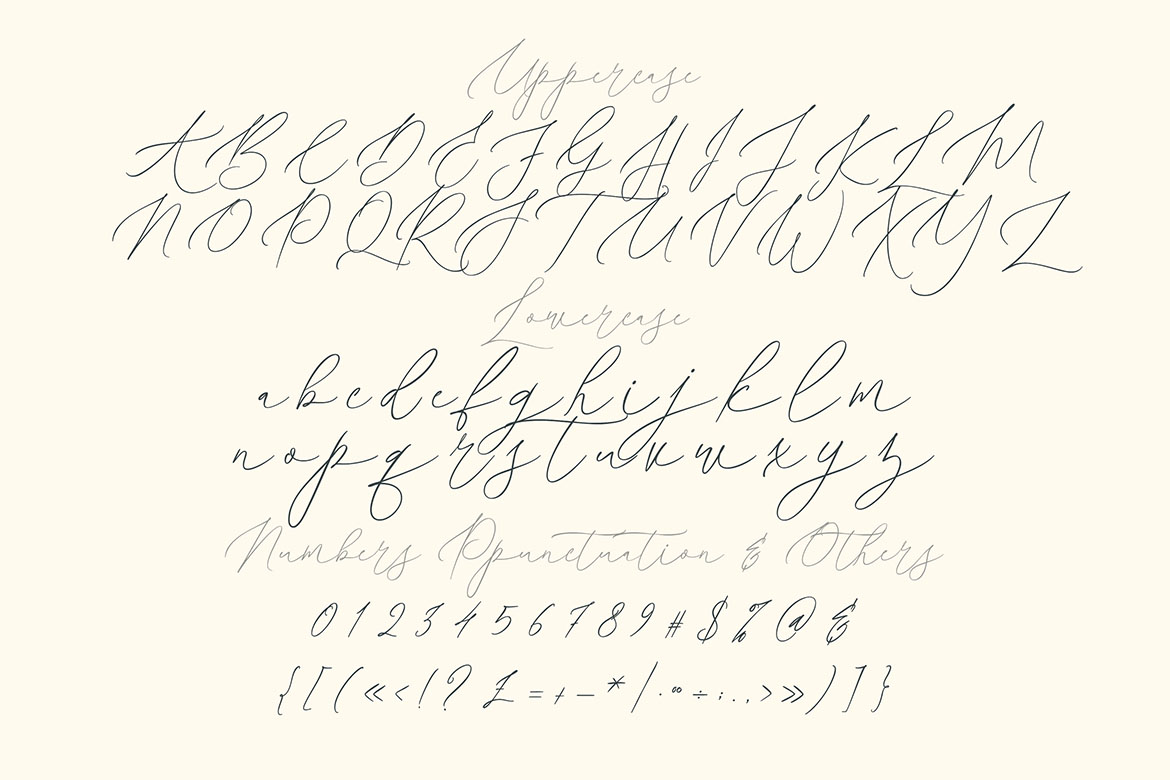 Uppercase
A B C D E F G H I J K L M
N O P Q R S T U V W X Y Z
Lowercase
a b c d e f g h i j k l m
n o p q r s t u v w x y z
Numbers Ppunctuation & Others
0 1 2 3 4 5 6 7 8 9 # $ % @ &
{ [ ( « < ! ? £ = + – * / · °° ÷ ; . , > » ) ] }